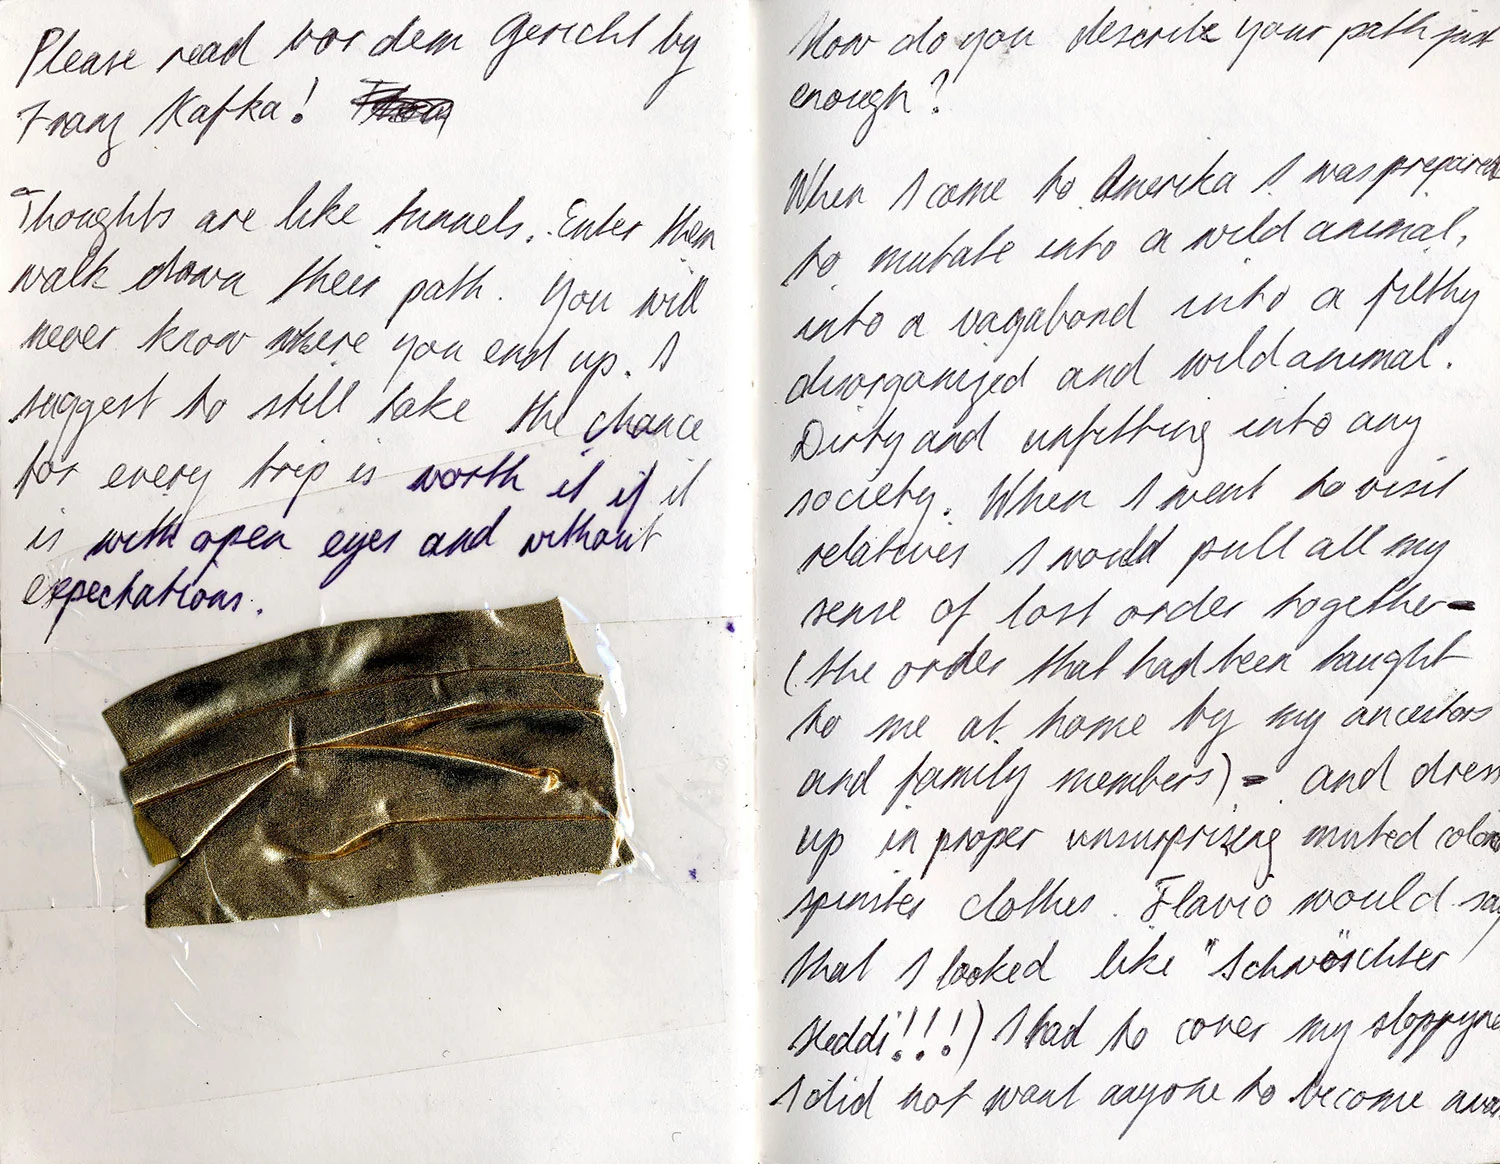 Please read vor dem Gericht by
Franz Kafka!
Thoughts are like tunnels. Enter them
walk down their path. You will
never know where you end up. I
suggest to still take the chance
for every trip is worth it if it
is with open eyes and without
expectations.
How do you describe your path just
enough?
When I come to Amerika I was prepared
to mutate into a wild animal,
into a vagabond into a filthy
disorganized and wild animal.
Dirty and unfitting into any
society. When I went to visit
relatives I would pull all my
sense of lost order together-
(the order that had been taught
to me at home by my ancestors
and family members)- and dress
up in proper unsurprizing muted colored
spinster clothes. Flavio would say
that I looked like "Schwöschter
Heddi!!!) I had to cover my sloppyne
I did not want anyone to become awa